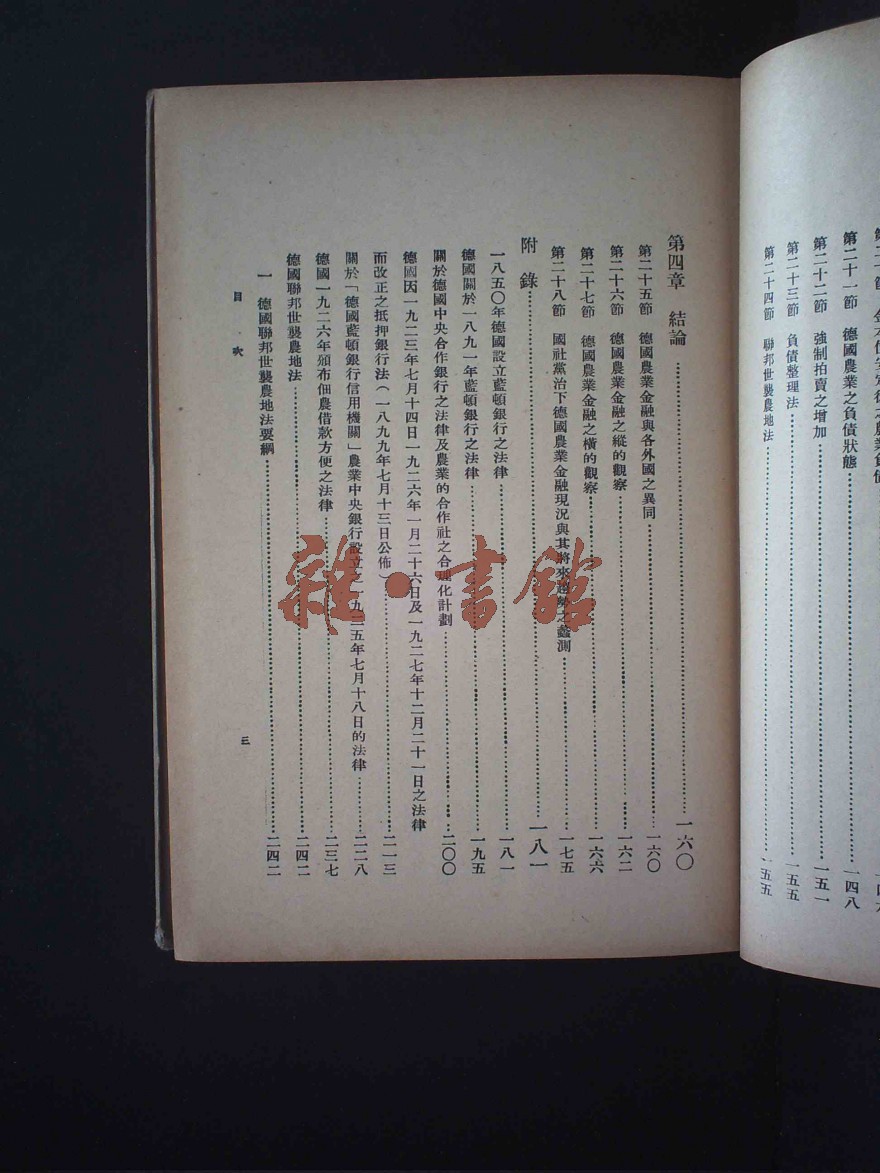 第二十一節 德國農業之負債狀態……一四八
第二十二節 強制拍賣之增加……一五一
第二十三節 負債整理法……一五五
第二十四節 聯邦世襲農地法……一五五
第四章 結論……一六〇
第二十五節 德國農業金融與各外國之異同……一六〇
第二十六節 德國農業金融之縱的觀察……一六二
第二十七節 德國農業金融之橫的觀察……一六六
第二十八節 國社黨治下德國農業金融現況與其將來趨勢之蠡測……一七五
附錄……一八一
一八五〇年德國設立藍頓銀行之法律……一八一
德國關於一八九一年藍頓銀行之法律……一九五
關於德國中央合作銀行之法律及農業的合作社之合理化計劃……二〇〇
德國因一九二三年七月十四日一九二六年一月二十六日及一九二七年十二月二十一日之法律
而改正之抵押銀行法(一八九九年七月十三日公佈)……二一三
關於「德國藍頓銀行信用機關」農業中央銀行設立之一九二五年七月十八日的法律……二二八
德國一九二六年頒布佃農借款方便之法律……二三七
德國聯邦世襲農地法……二四二
一 德國聯邦世襲農地法要綱……二四二
目次
三
雜·書館